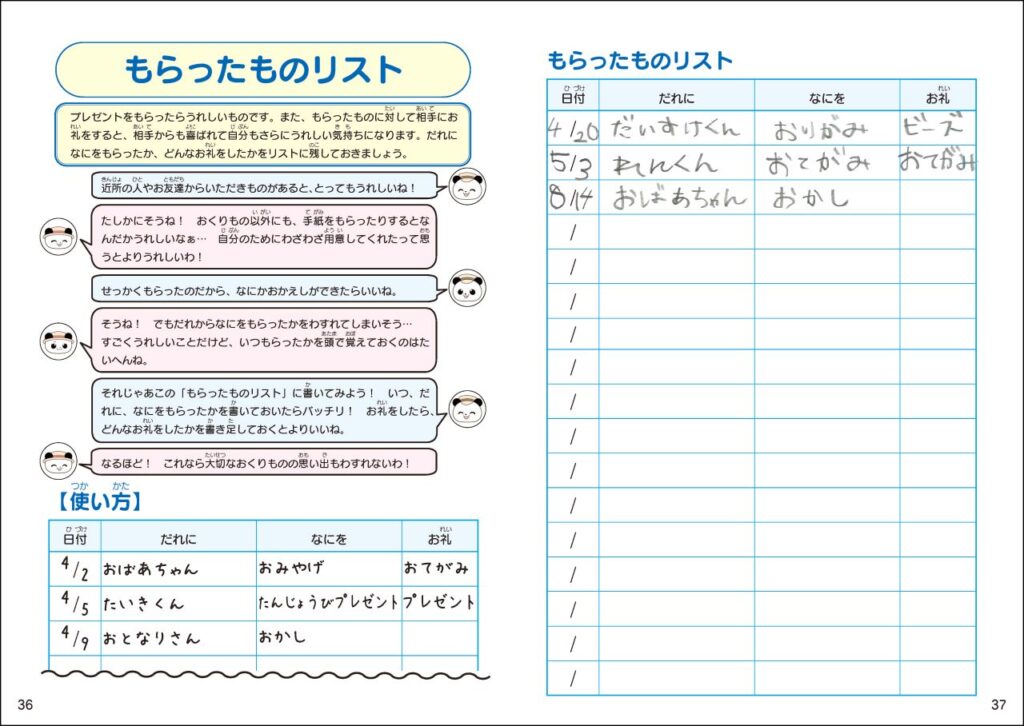 もらったものリスト
プレゼントをもらったらうれしいものです。また、もらったものに対して相手にお
礼をすると、相手からも喜ばれて自分もさらにうれしい気持ちになります。だれに
なにをもらったか、どんなお礼をしたかをリストに残しておきましょう。
近所の人やお友達からいただきものがあると、とってもうれしいね！
たしかにそうね！ おくりもの以外にも、手紙をもらったりするとな
んだかうれしいなぁ… 自分のためにわざわざ用意してくれたって思
うとよりうれしいわ！
せっかくもらったのだから、なにかおかえしができたらいいね。
そうね！ でもだれからなにをもらったかをわすれてしまいそう…
すごくうれしいことだけど、いつもらったかを頭で覚えておくのはた
いへんね。
それじゃあこの「もらったものリスト」に書いてみよう！ いつ、だ
れに、なにをもらったかを書いておいたらバッチリ！ お礼をしたら、
どんなお礼をしたかを書き足しておくとよりいいね。
なるほど！ これなら大切なおくりものの思い出もわすれないわ！
【使い方】
日付 だれに なにを お礼
4/2 おばあちゃん おみやげ おてがみ
4/5 たいきくん たんじょうびプレゼント プレゼント
4/9 おとなりさん おかし
36
もらったものリスト
日付 だれに なにを お礼
4/20 だいすけくん おりがみ ビーズ
5/3 れんくん おてがみ おてがみ
8/14 おばあちゃん おかし
/
/
/
/
/
/
/
/
/
/
/
/
/
/
37